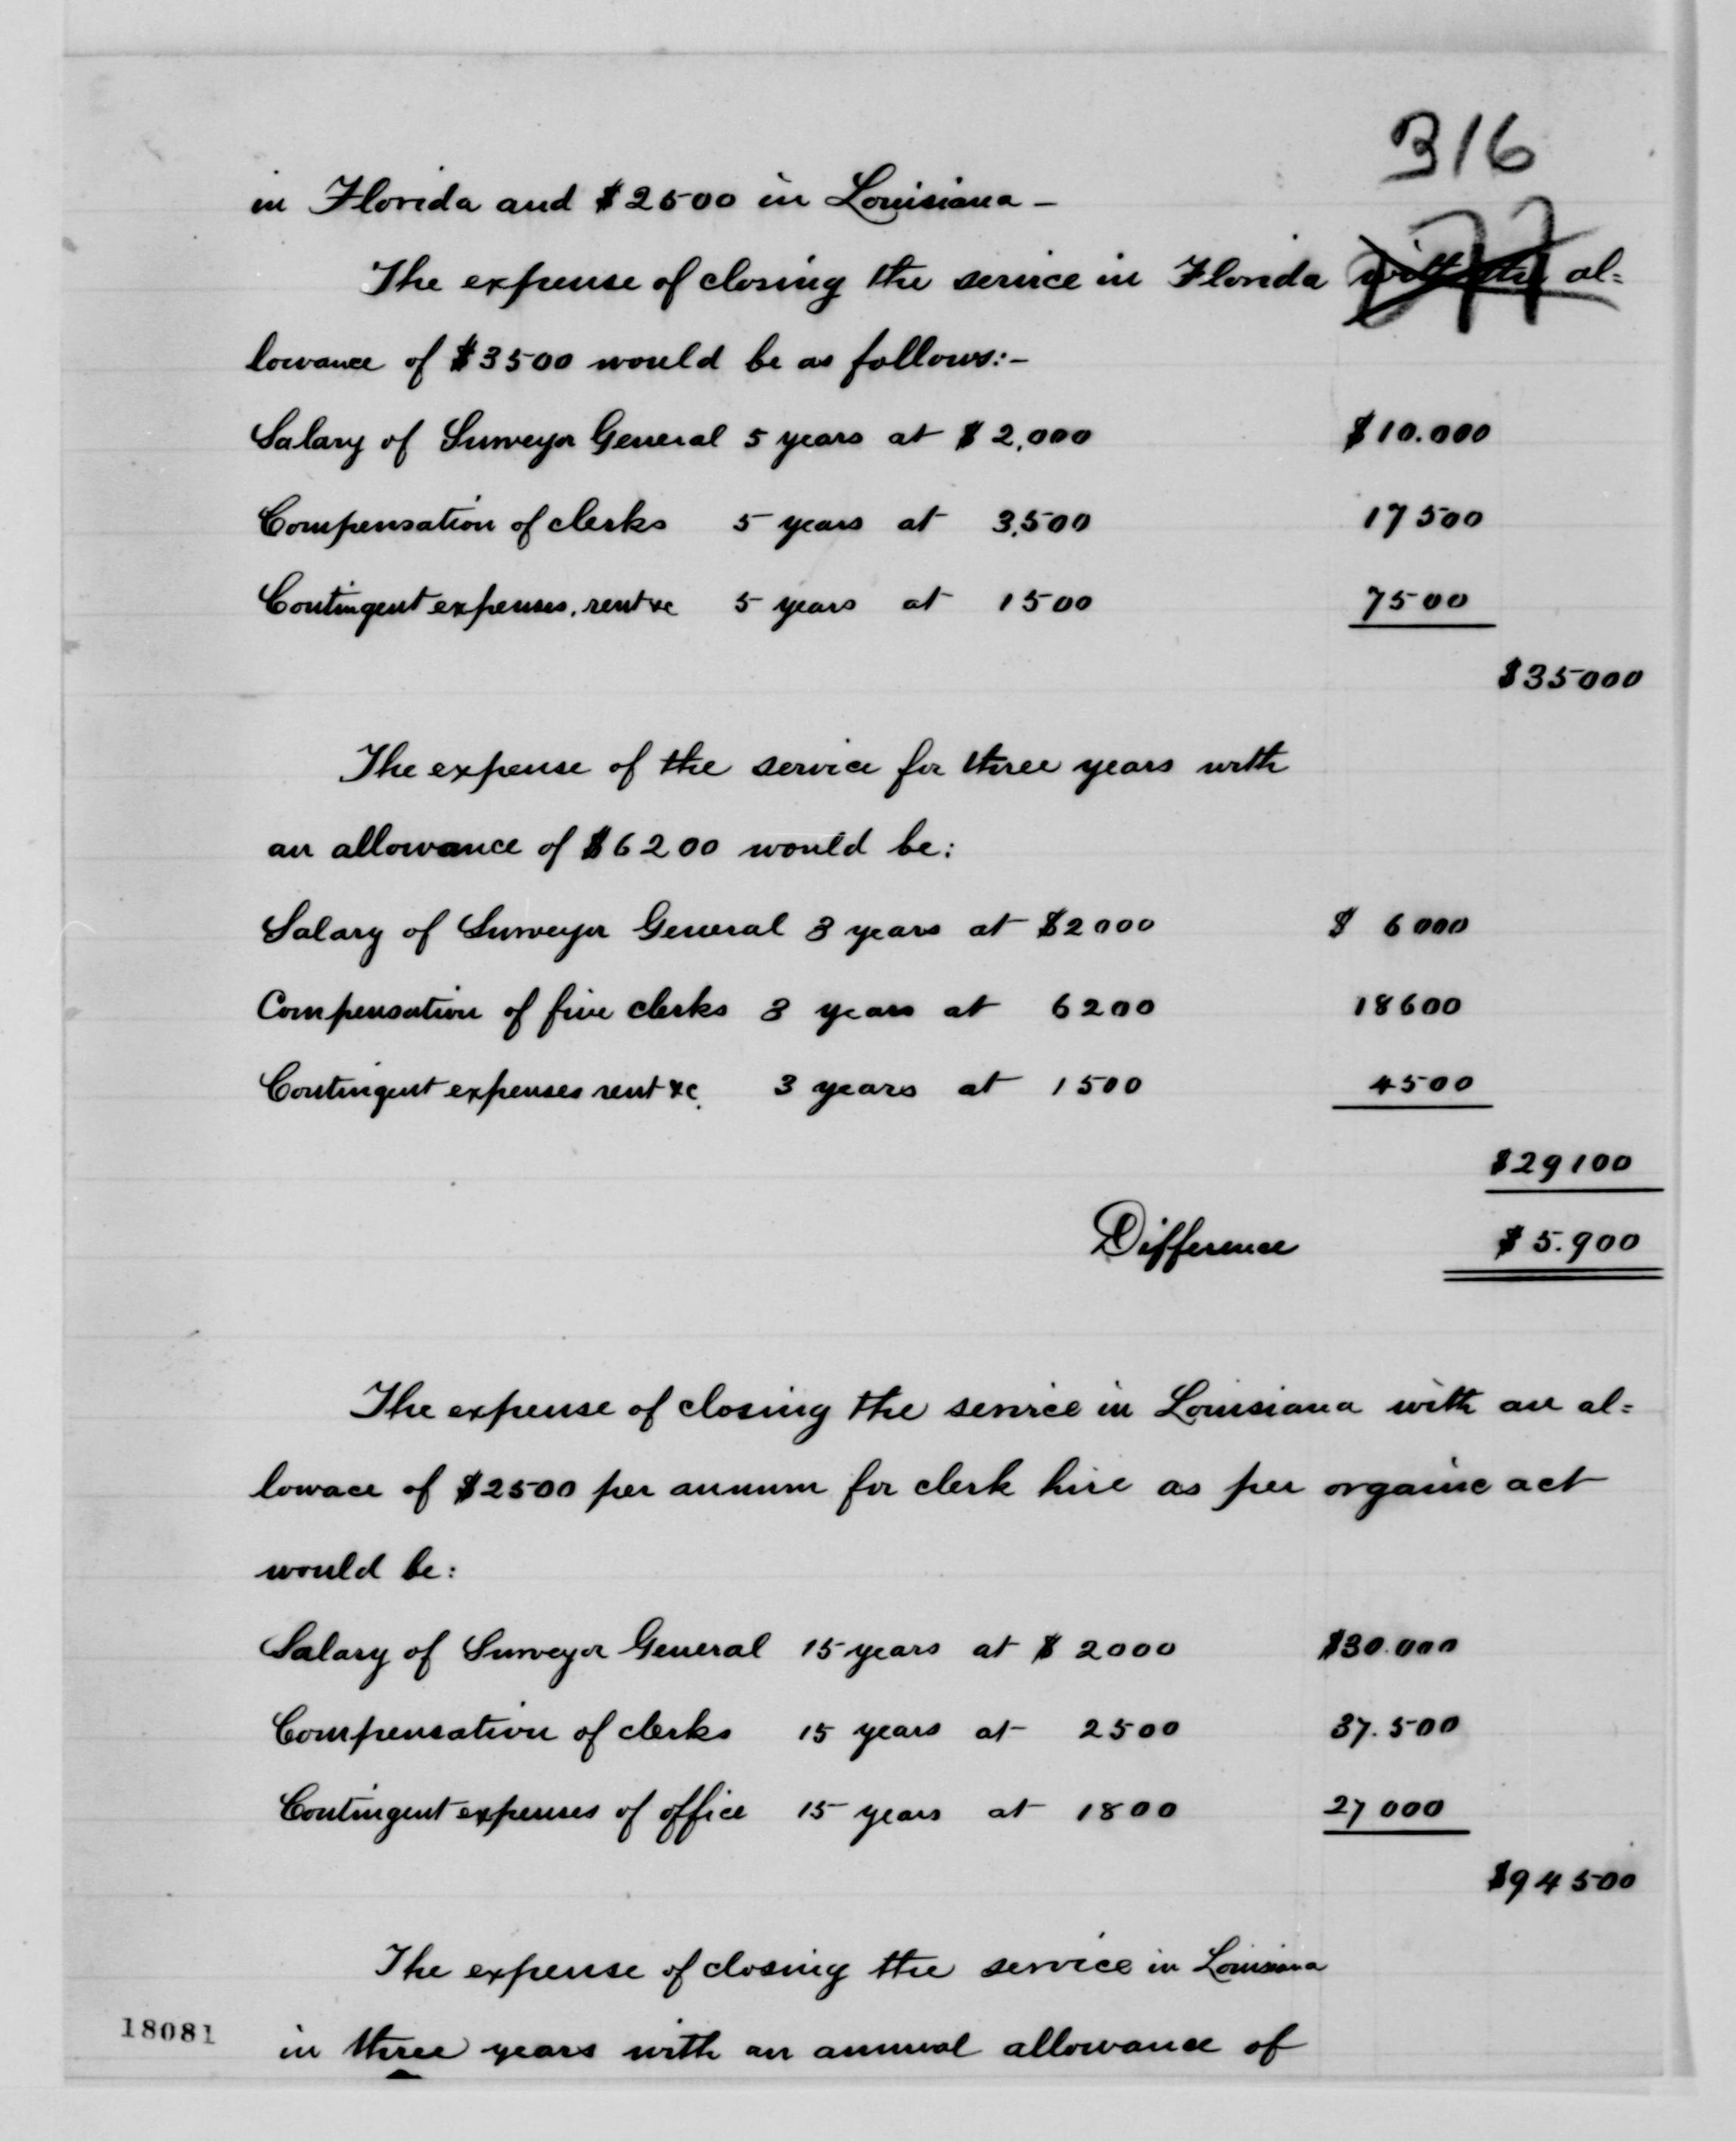 316
in Florida and $2500 in Louisiana –
The expense of closing the service in Florida with the al=
lowance of $3500 would be as follows:–
Salary of Surveyor General 5 years at $2,000 $10.000
Compensation of clerks 5 years at 3,500 17500
Contingent expenses, rent &c 5 years at 1500 7500
$35000
The expense of the service for three years with
an allowance of $6200 would be:
Salary of Surveyor General 3 years at $2000 $ 6000
Compensation of five clerks 3 years at 6200 18600
Contingent expenses rent &c. 3 years at 1500 4500
$29100
Difference $5.900
The expense of closing the service in Louisiana with an al=
lowace of $2500 per annum for clerk hire as per organic act
would be:
Salary of Surveyor General 15 years at $2000 $30.000
Compensation of clerks 15 years at 2500 37.500
Contingent expenses of office 15 years at 1800 27000
$94500
The expense of closing the service in Louisiana
18081
in three years with an annual allowance of